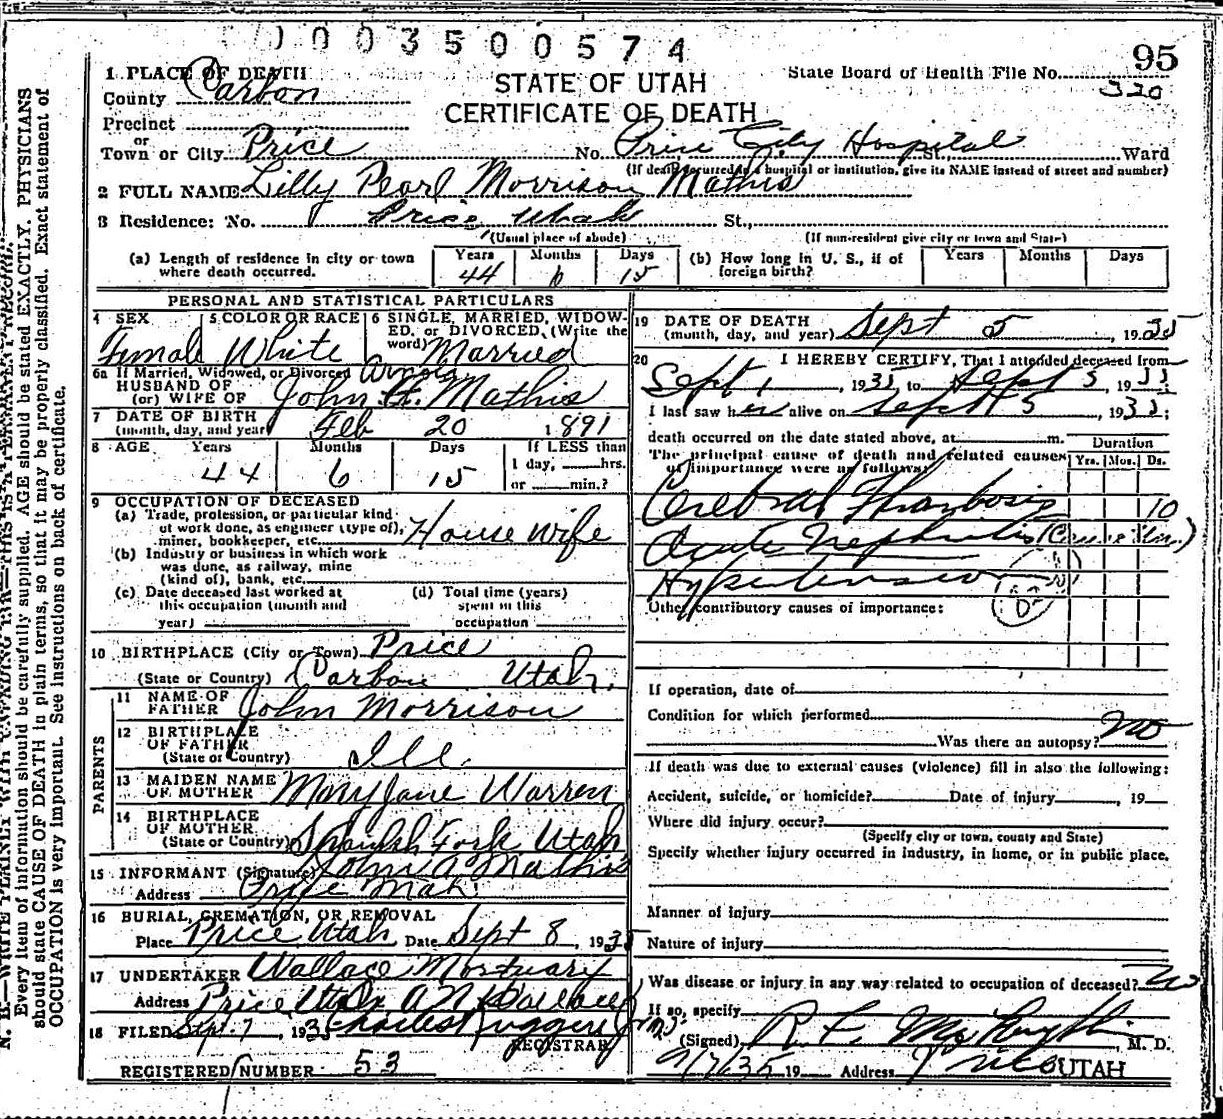 0003500574
95
1 PLACE OF DEATH
STATE OF UTAH
State Board of Health File No. 320
County Carbon
CERTIFICATE OF DEATH
Precinct
or
Town or City Price No. Price City Hospital St., Ward
(If death occurred in a hospital or institution, give its NAME instead of street and number)
2 FULL NAME Lilly Pearl Morrison Mathis
3 Residence: No. Price Utah St.,
(Usual place of abode) (If non-resident give city or town and State)
(a) Length of residence in city or town where death occurred. Years 44 Months 6 Days 15
(b) How long in U. S., if of foreign birth? Years Months Days
PERSONAL AND STATISTICAL PARTICULARS
4 SEX Female
5 COLOR OR RACE White
6 SINGLE, MARRIED, WIDOWED, or DIVORCED, (Write the word) Married
6a If Married, Widowed, or Divorced
HUSBAND OF
(or) WIFE OF John A. Mathis
Arnold
7 DATE OF BIRTH
(month, day, and year) Feb 20 1891
8 AGE Years 44 Months 6 Days 15
If LESS than
1 day, hrs.
or min.?
9 OCCUPATION OF DECEASED
(a) Trade, profession, or particular kind
of work done, as engineer (type of),
miner, bookkeeper, etc. House wife
(b) Industry or business in which work
was done, as railway, mine
(kind of), bank, etc.
(c) Date deceased last worked at
this occupation (month and
year)
(d) Total time (years)
spent in this
occupation
10 BIRTHPLACE (City or Town) Price
(State or Country) Carbon Utah.
PARENTS
11 NAME OF
FATHER John Morrison
12 BIRTHPLACE
OF FATHER
(State or Country) Ill.
13 MAIDEN NAME
OF MOTHER Mary Jane Warren
14 BIRTHPLACE
OF MOTHER
(State or Country) Spanish Fork Utah
15 INFORMANT (Signature) John A Mathis
Address Price Utah
16 BURIAL, CREMATION, OR REMOVAL
Place Price Utah Date Sept 8, 1935
17 UNDERTAKER Wallace Mortuary
Address Price Utah A N Wallace
18 FILED Sept. 7, 1935 Charles Ruggeri
REGISTRAR
REGISTERED NUMBER 53
19 DATE OF DEATH
(month, day, and year) Sept 5, 1935
20 I HEREBY CERTIFY, That I attended deceased from
Sept 1, 1935, to Sept 5, 1935
I last saw her alive on Sept 5, 1935;
death occurred on the date stated above, at m.
The principal cause of death and related causes
of importance were as follows:
Duration
Yrs. Mos. Ds.
Cerebral Thrombosis 10
Acute Nephritis
Hypertension
Other contributory causes of importance:
If operation, date of
Condition for which performed
Was there an autopsy? no
If death was due to external causes (violence) fill in also the following:
Accident, suicide, or homicide? Date of injury, 19
Where did injury occur?
(Specify city or town, county and State)
Specify whether injury occurred in industry, in home, or in public place.
Manner of injury
Nature of injury
Was disease or injury in any way related to occupation of deceased? no
If so, specify
(Signed) R. F. M. D.
9/7/35 19 Address Price UTAH
N. B.—WRITE PLAINLY WITH UNFADING INK—THIS IS A PERMANENT RECORD.
Every item of information should be carefully supplied. AGE should be stated EXACTLY. PHYSICIANS
should state CAUSE OF DEATH in plain terms, so that it may be properly classified. Exact statement of
OCCUPATION is very important. See instructions on back of certificate.